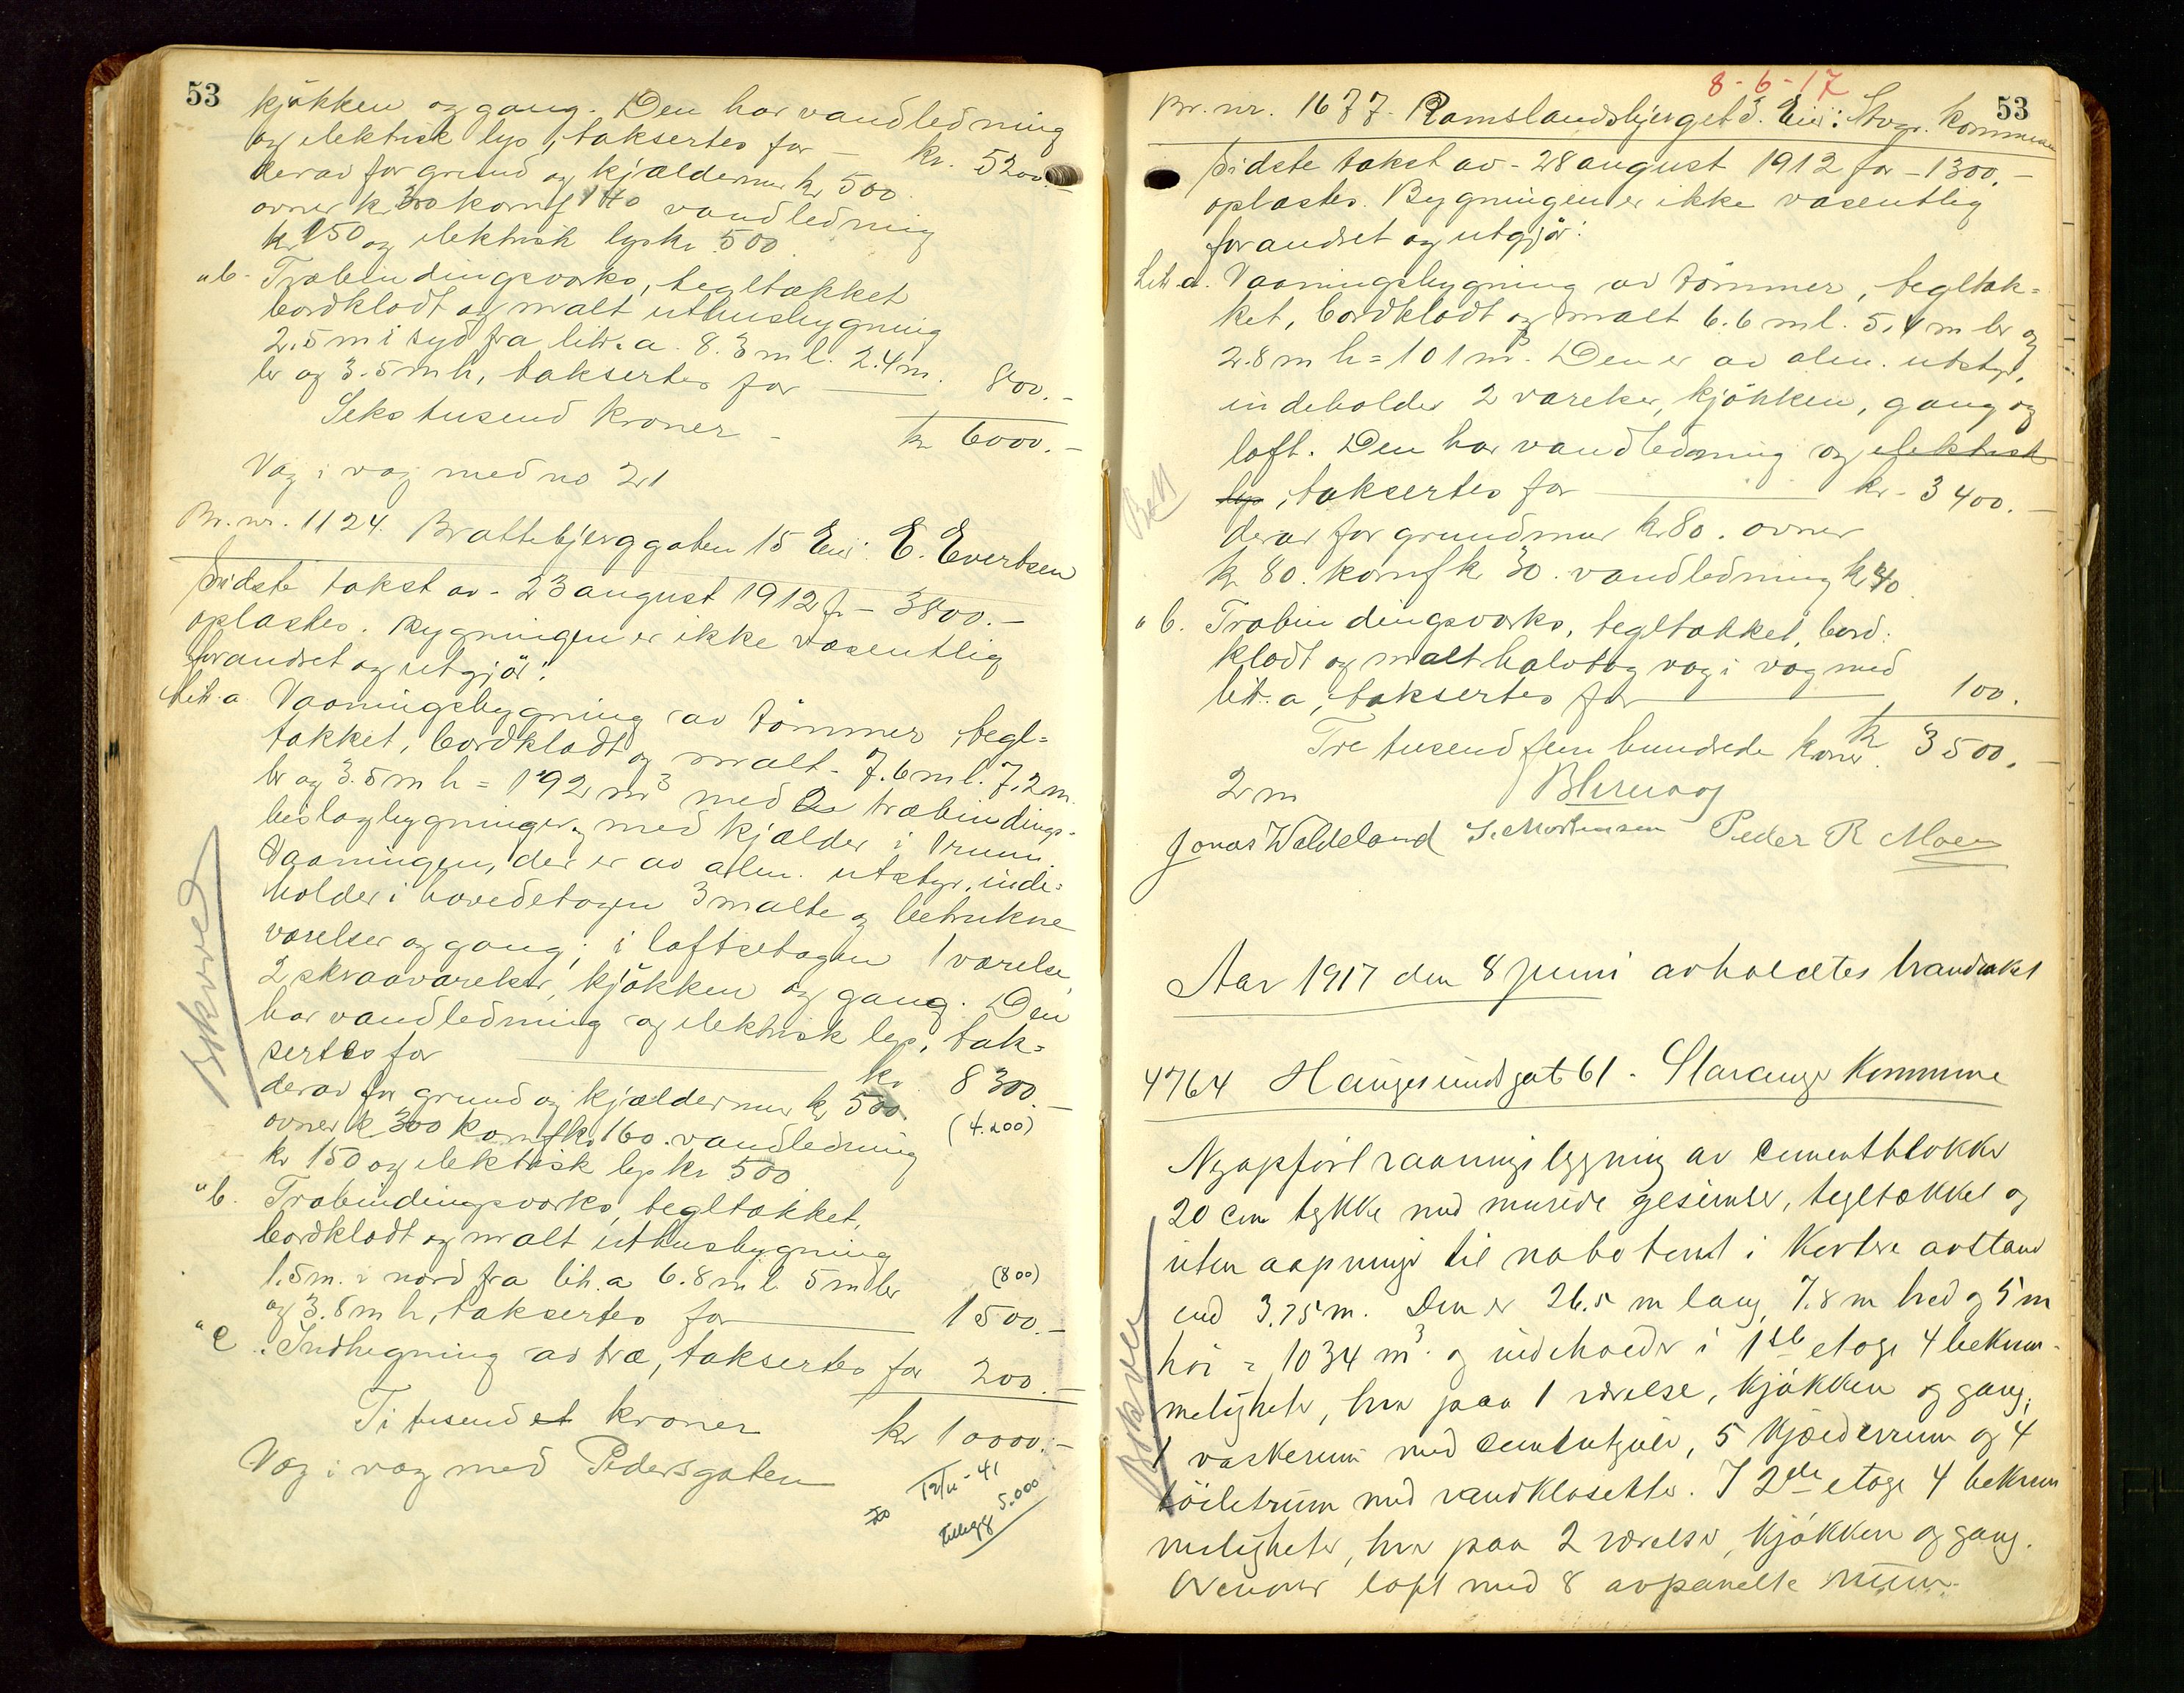 53
kjökken og gang. Den har vandledning
og elektrisk lys, taksertes for — kr. 5200.-
derav for grund og kjældermur kr 500
ovner kr 300 komf 140 vandledning
kr 150 og elektrisk lys kr 500
"b. Træbindingsverks, tegltækket
bordklædt og malt uthusbygning
2.5 m i syd fra litr. a. 8.3 m l. 2.4 m.
br og 3.5 m h, taksertes for — 800.-
Seks tusend kroner - kr 6000.-
Væg i væg med no 21
Br. nr. 1124. Brattebjerggaten 15 Eier: E. Evertsen
Sidste takst av - 23 august 1912 fr - 3800.-
oplæstes. Bygningen er ikke væsentlig
forandret og utgjör:
Litr. a. Vaaningsbygning av tömmer, tegl=
tækket, bordklædt og malt. 7.6 m l. 7.2 m.
br og 3.5 m h = 192 m3 med 2 træbindings-
beslagbygninger, med kjælder i 1 rum.
Vaaningen, der er av alm. utstyr, inde=
holder i hovedetagen 3 malte og betrukne
værelser og gang; i loftsetagen 1 værelse,
2 skraaværelser, kjökken og gang. Den
har vandledning og elektrisk lys, tak=
sertes for — kr 8300.-
derav for grund og kjældermur kr 500. (4.200)
ovner kr 300 komf kr 160. vandledning
kr 150 og elektrisk lys kr 500
"b. Træbindingsverks, tegltækket,
bordklædt og malt uthusbygning
1.5 m. i nord fra litr. a 6.8 m l. 5 m br (800)
og 3.8 m h, taksertes for — 1500.-
"c. Indhegning av træ, taksertes for 200.-
Ti tusend et kroner kr 10000.-
Væg i væg med Pedersgaten
12/11-41
Tillegg 5.000
Bykved
8-6-17
53
Br. nr. 1677. Ramslandsbjerget 3. Eier: Stvgr. kommune
Sidste takst av - 28 august 1912 for - 1300.-
oplæstes. Bygningen er ikke væsentlig
forandret og utgjör:
Litr. a. Vaaningsbygning av tömmer, tegltæk=
ket, bordklædt og malt 6.6 m l. 5.4 m br og
2.8 m h = 101 m3. Den er av alm. utstyr,
indeholder 2 værelser, kjökken, gang og
loft. Den har vandledning og elektrisk
lys, taksertes for — kr - 3400.-
derav for grundmur kr 80. ovner
kr 80. komf kr 30. vandledning kr 40.
" b. Træbindingsverks, tegltækket, bord-
klædt og malt halvtag væg i væg med
litr. a, taksertes for — 100.
Tre tusend fem hundrede kroner. kr 3500.-
2 m
Jonas Waldeland S. Mortensen Peder R Moen
Aar 1917 den 8 juni avholdtes brandtakst
4764 Haugesundsgat 61. Stavanger Kommune
Nyopfört vaaningsbygning av cementblokker
20 cm tykke med murede gesimser, tegltækket og
uten aapninger til nabotomt i kortere avstand
end 3.75 m. Den er 26.5 m lang, 7.8 m bred og 5 m
höi = 1034 m3 og indeholder i 1ste etage 4 bekvem-
meligheter, hver paa 1 værelse, kjökken og gang,
1 vaskerum med cementgulv, 5 kjælderrum og 4
töiletrum med vandklosetter. I 2den etage 4 bekvem
meligheter, hver paa 2 værelser, kjökken og gang.
Ovenover loft med 8 avpanelte rum.